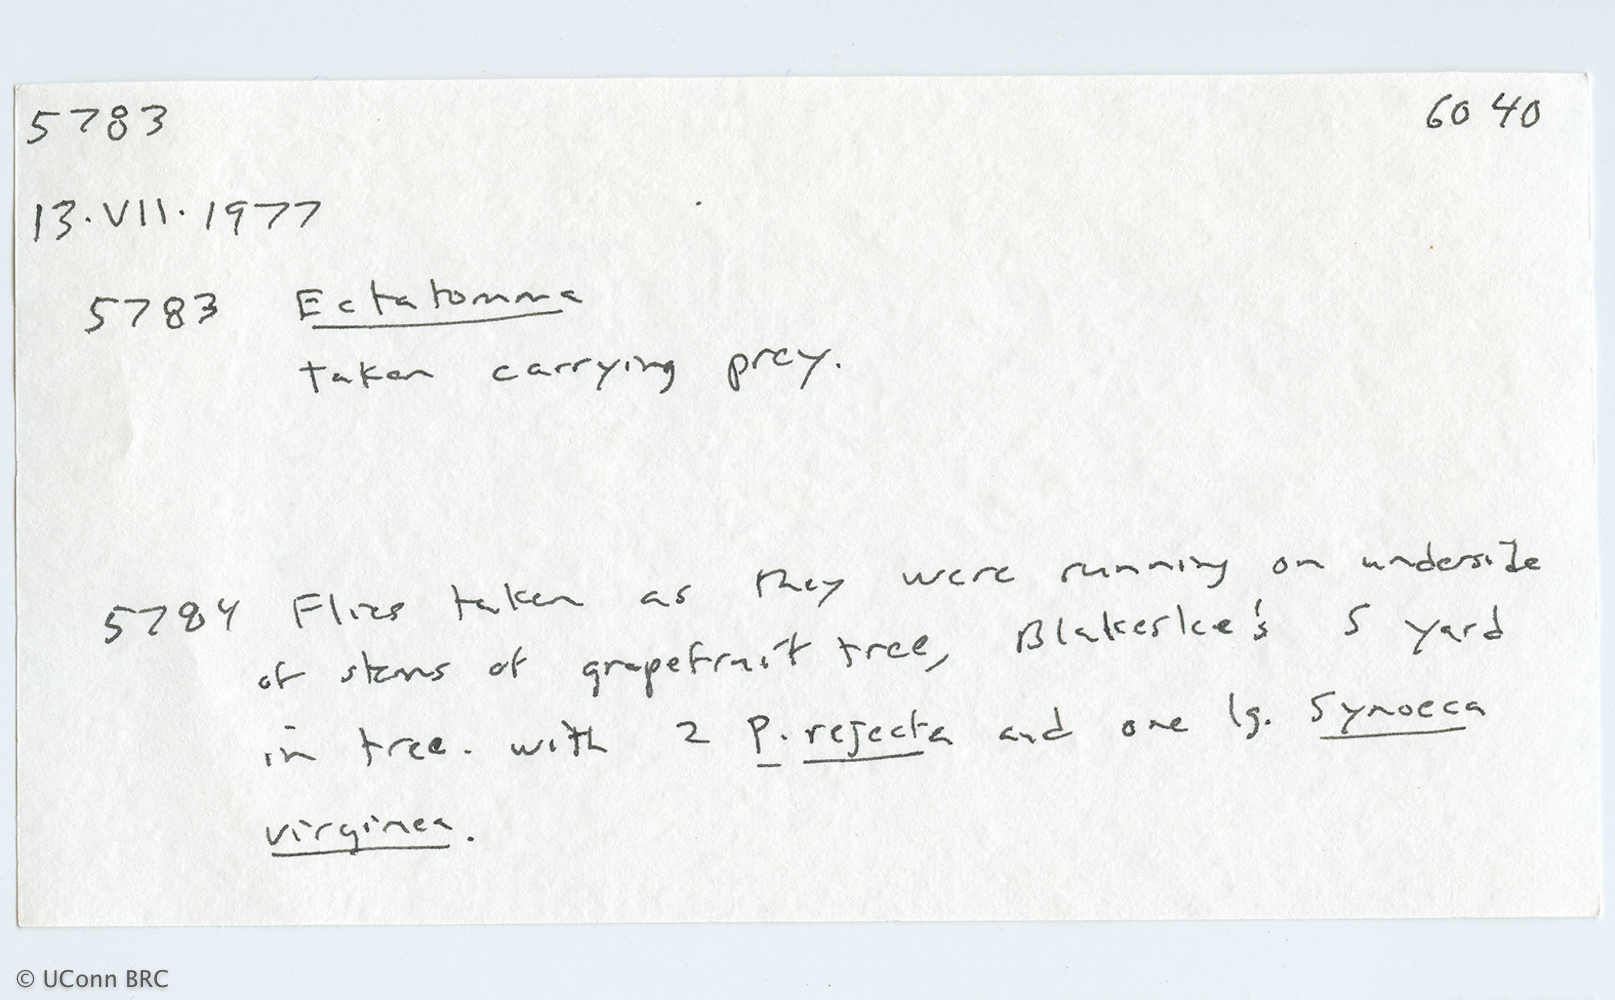 5783 6040
13.VII.1977
5783 Ectatomma
taken carrying prey.
5784 Flies taken as they were running on underside
of stems of grapefruit tree, Blakeslee's S yard
in tree. with 2 P. rejecta and one lg. Synoeca
virginea.
© UConn BRC